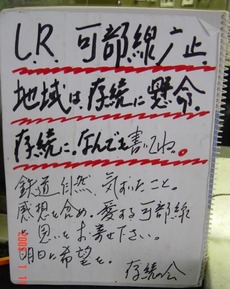 L.R. 可部線廃止.
地域は、存続に懸命.
存続に、なんでも書いてね。
鉄道、自然、気づいたこと。
感想を含め。愛する可部線
を思いをお寄せ下さい。
明日に希望を。
存続の会